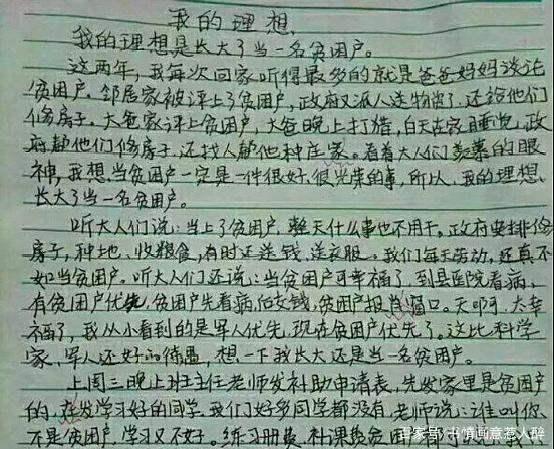 我的理想
我的理想是长大了当一名贫困户。
这两年,我每次回家听得最多的就是爸爸妈妈谈论
贫困户,邻居家被评上了贫困户,政府又派人送物资了,还给他们
修房子。大爸家评上贫困户,大爸晚上打猎,白天在家睡觉,政
府帮他们修房子,还找人帮他种庄家。看着大人们羡慕的眼
神,我想当贫困户一定是一件很好、很光荣的事,所以、我的理想、
长大了当一名贫困户。
听大人们说:当上了贫困户,整天什么事也不用干。政府安排修
房子,种地、收粮食,有时还送钱、送衣服。我们每天劳动,还真不
如当贫困户。听大人们还说:当贫困户可幸福了,到县医院看病,
有贫困户优先,贫困户先看病,后交钱,贫困户报销窗口。天啊,太幸
福了,我从小看到的是军人优先,现在贫困户优先了。这比科学
家,军人还好的待遇,想一下我长大还是当一名贫困户。
上周三晚上班主任老师发补助申请表,先发家里是贫困户
的,在发学习好的同学,我们好多同学都没有,老师说:谁叫你
不是贫困户,学习又不好。练习册费,补课费贫困户
百家号/书情画意惹人醉